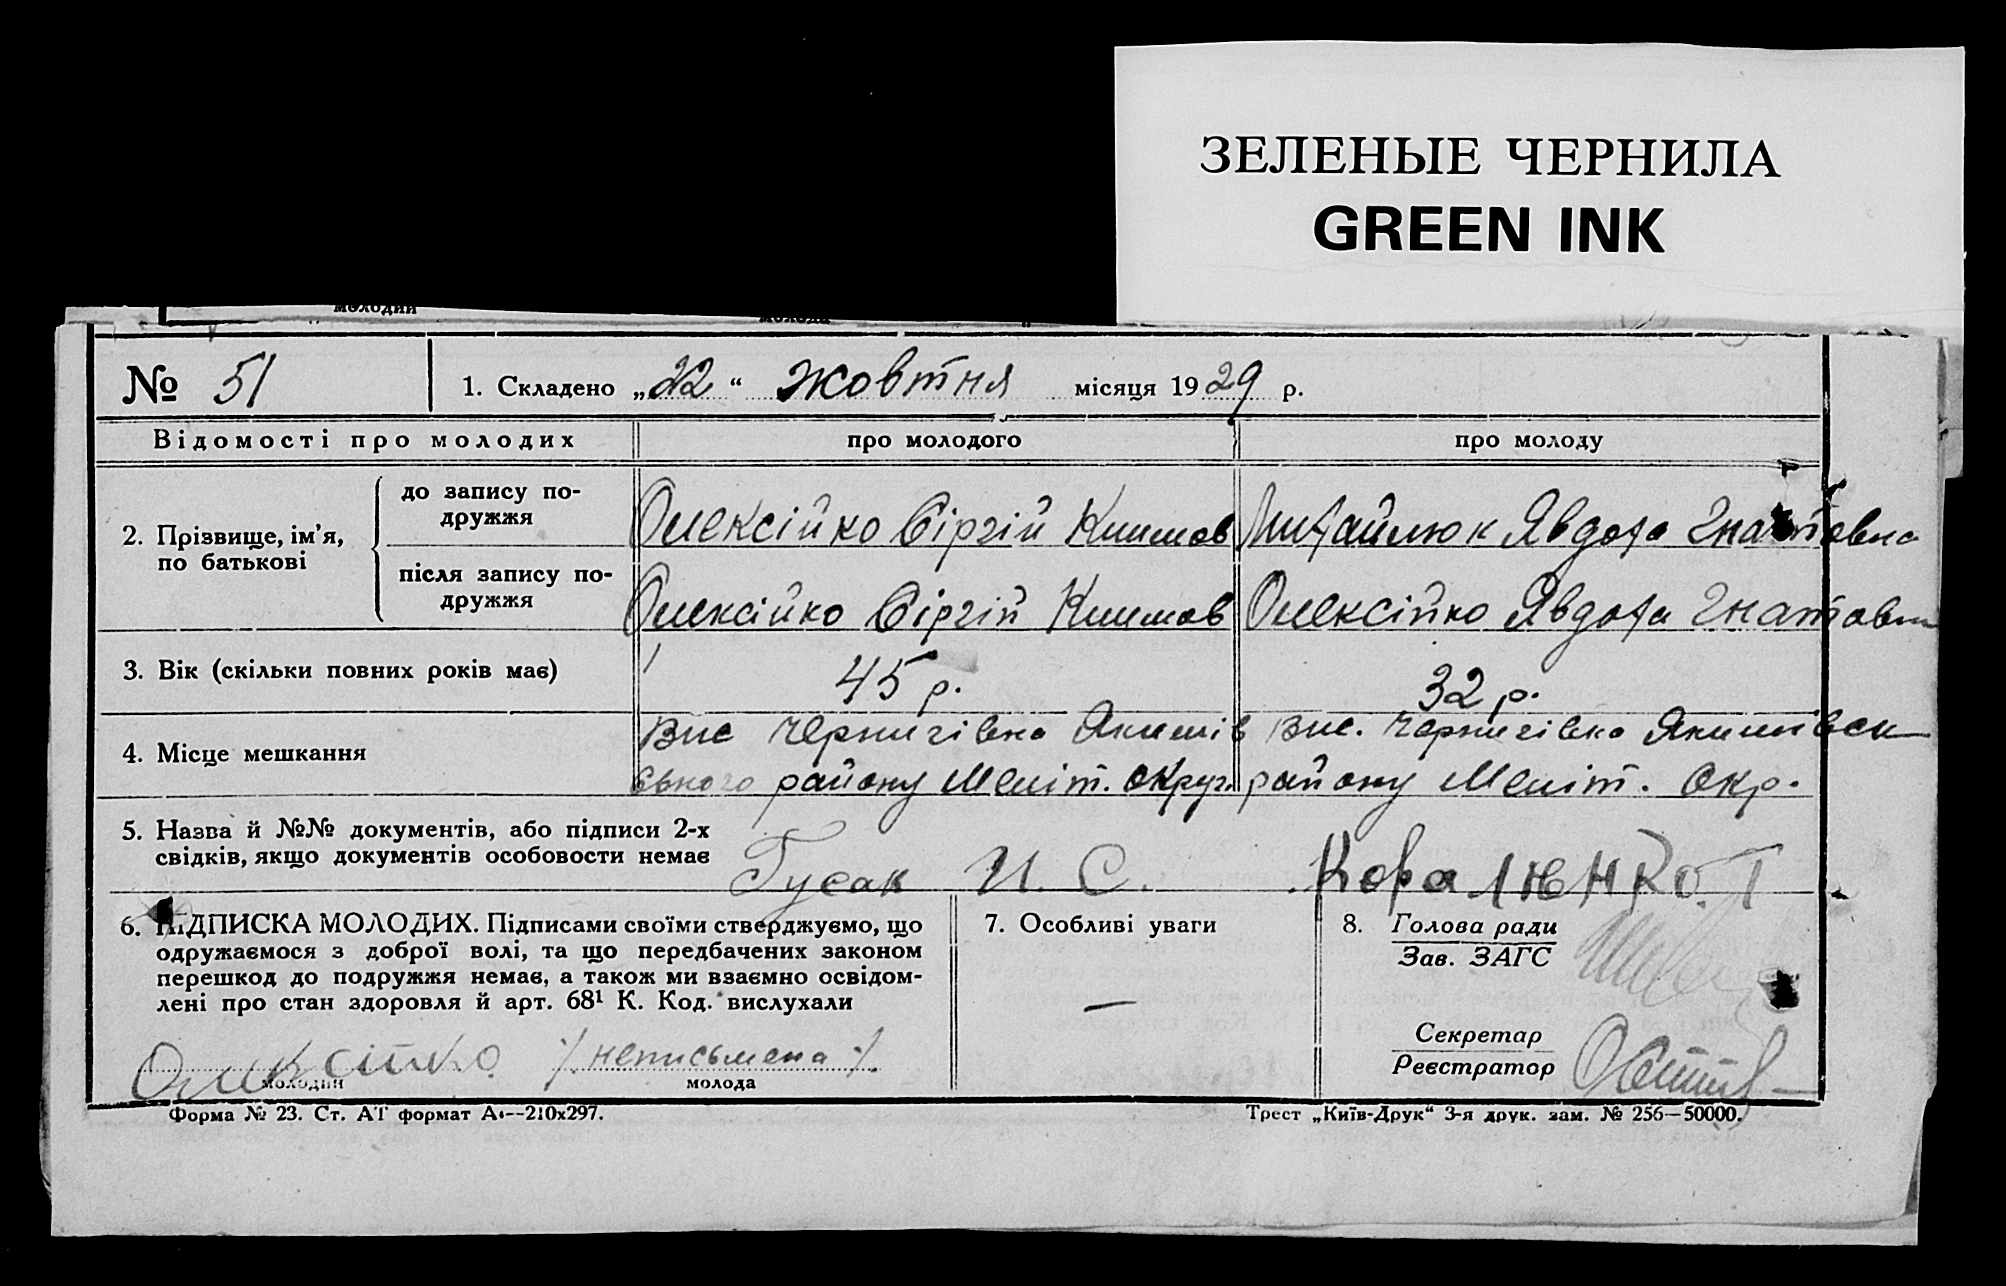 ЗЕЛЕНЫЕ ЧЕРНИЛА
GREEN INK
молодий
молода
№ 51
1. Складено „22“ жовтня місяця 1929 р.
Відомості про молодих
про молодого
про молоду
2. Прізвище, ім'я, по батькові
до запису по-
дружжя
Олексійко Сіргій Климов
Михайлюк Явдоха Гнатовна
після запису по-
дружжя
Олексійко Сіргій Климов
Олексійко Явдоха Гнатовн
3. Вік (скільки повних років має)
45 р.
32 р.
4. Місце мешкання
Вис Чернигівка Якимів
ського району Меліт. округ.
Вис. Чернигівка Якимівськ
району Меліт. окр.
5. Назва й №№ документів, або підписи 2-х
свідків, якщо документів особовости немає
Гусак И. С.
Коваленко. Г
6. ПІДПИСКА МОЛОДИХ. Підписами своїми стверджуємо, що
одружаємося з доброї волі, та що передбачених законом
перешкод до подружжя немає, а також ми взаємно освідом-
лені про стан здоровля й арт. 68¹ К. Код. вислухали
Олексійко
молодий
/ неписьмена /.
молода
7. Особливі уваги
—
8. Голова ради
Зав. ЗАГС
Секретар
Реєстратор
Форма № 23. Ст. АТ формат А4—210х297.
Трест „Київ-Друк“ 3-я друк. зам. № 256—50000.